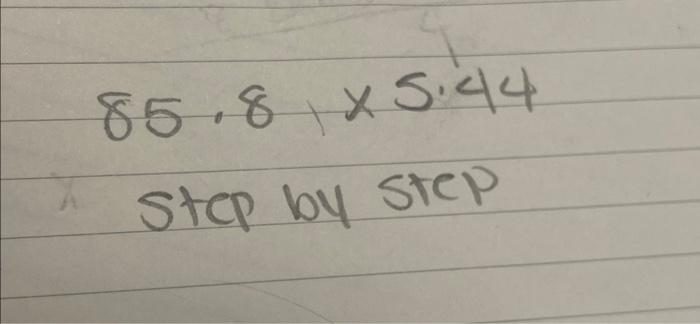 85.8 x 5.44
Step by step